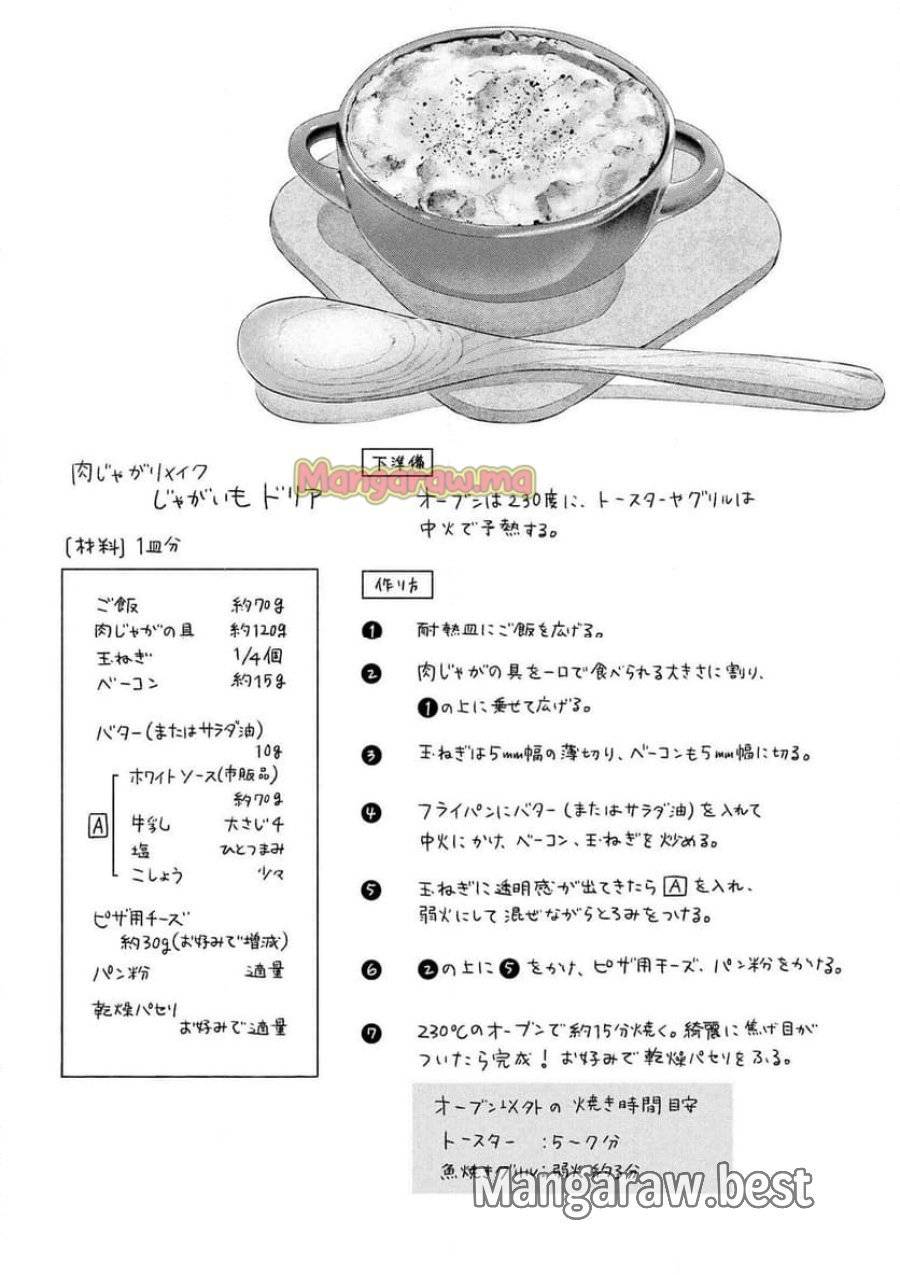 肉じゃがリメイク
じゃがいもドリア
[材料] 1皿分
ご飯 約70g
肉じゃがの具 約120g
玉ねぎ 1/4個
ベーコン 約15g
バター(またはサラダ油)
10g
A
ホワイトソース(市販品)
約70g
牛乳 大さじ4
塩 ひとつまみ
こしょう 少々
ピザ用チーズ
約30g(お好みで増減)
パン粉 適量
乾燥パセリ
お好みで適量
下準備
オーブンは230度に、トースターやグリルは
中火で予熱する。
作り方
❶ 耐熱皿にご飯を広げる。
❷ 肉じゃがの具を一口で食べられる大きさに割り、
❶の上に乗せて広げる。
❸ 玉ねぎは5mm幅の薄切り、ベーコンも5mm幅に切る。
❹ フライパンにバター(またはサラダ油)を入れて
中火にかけ、ベーコン、玉ねぎを炒める。
❺ 玉ねぎに透明感が出てきたらAを入れ、
弱火にして混ぜながらとろみをつける。
❻ ❷の上に❺をかけ、ピザ用チーズ、パン粉をかける。
❼ 230℃のオーブンで約15分焼く。綺麗に焦げ目が
ついたら完成! お好みで乾燥パセリをふる。
オーブン以外の焼き時間目安
トースター :5〜7分
魚焼きグリル:弱火 約3分
Mangaraw.ma
Mangaraw.best